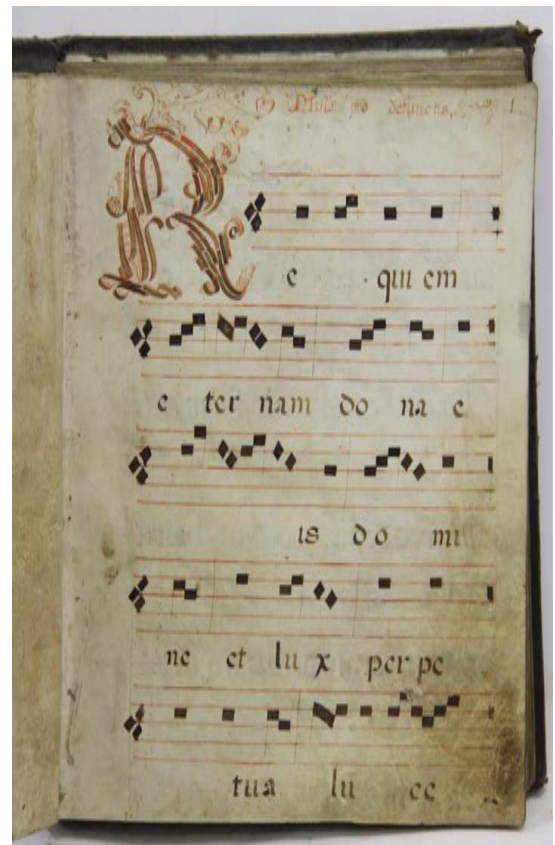 Missa pro defunctis. 1
R e qui em
e ter nam do na e
is do mi
ne et lu x per pe
tua lu ce